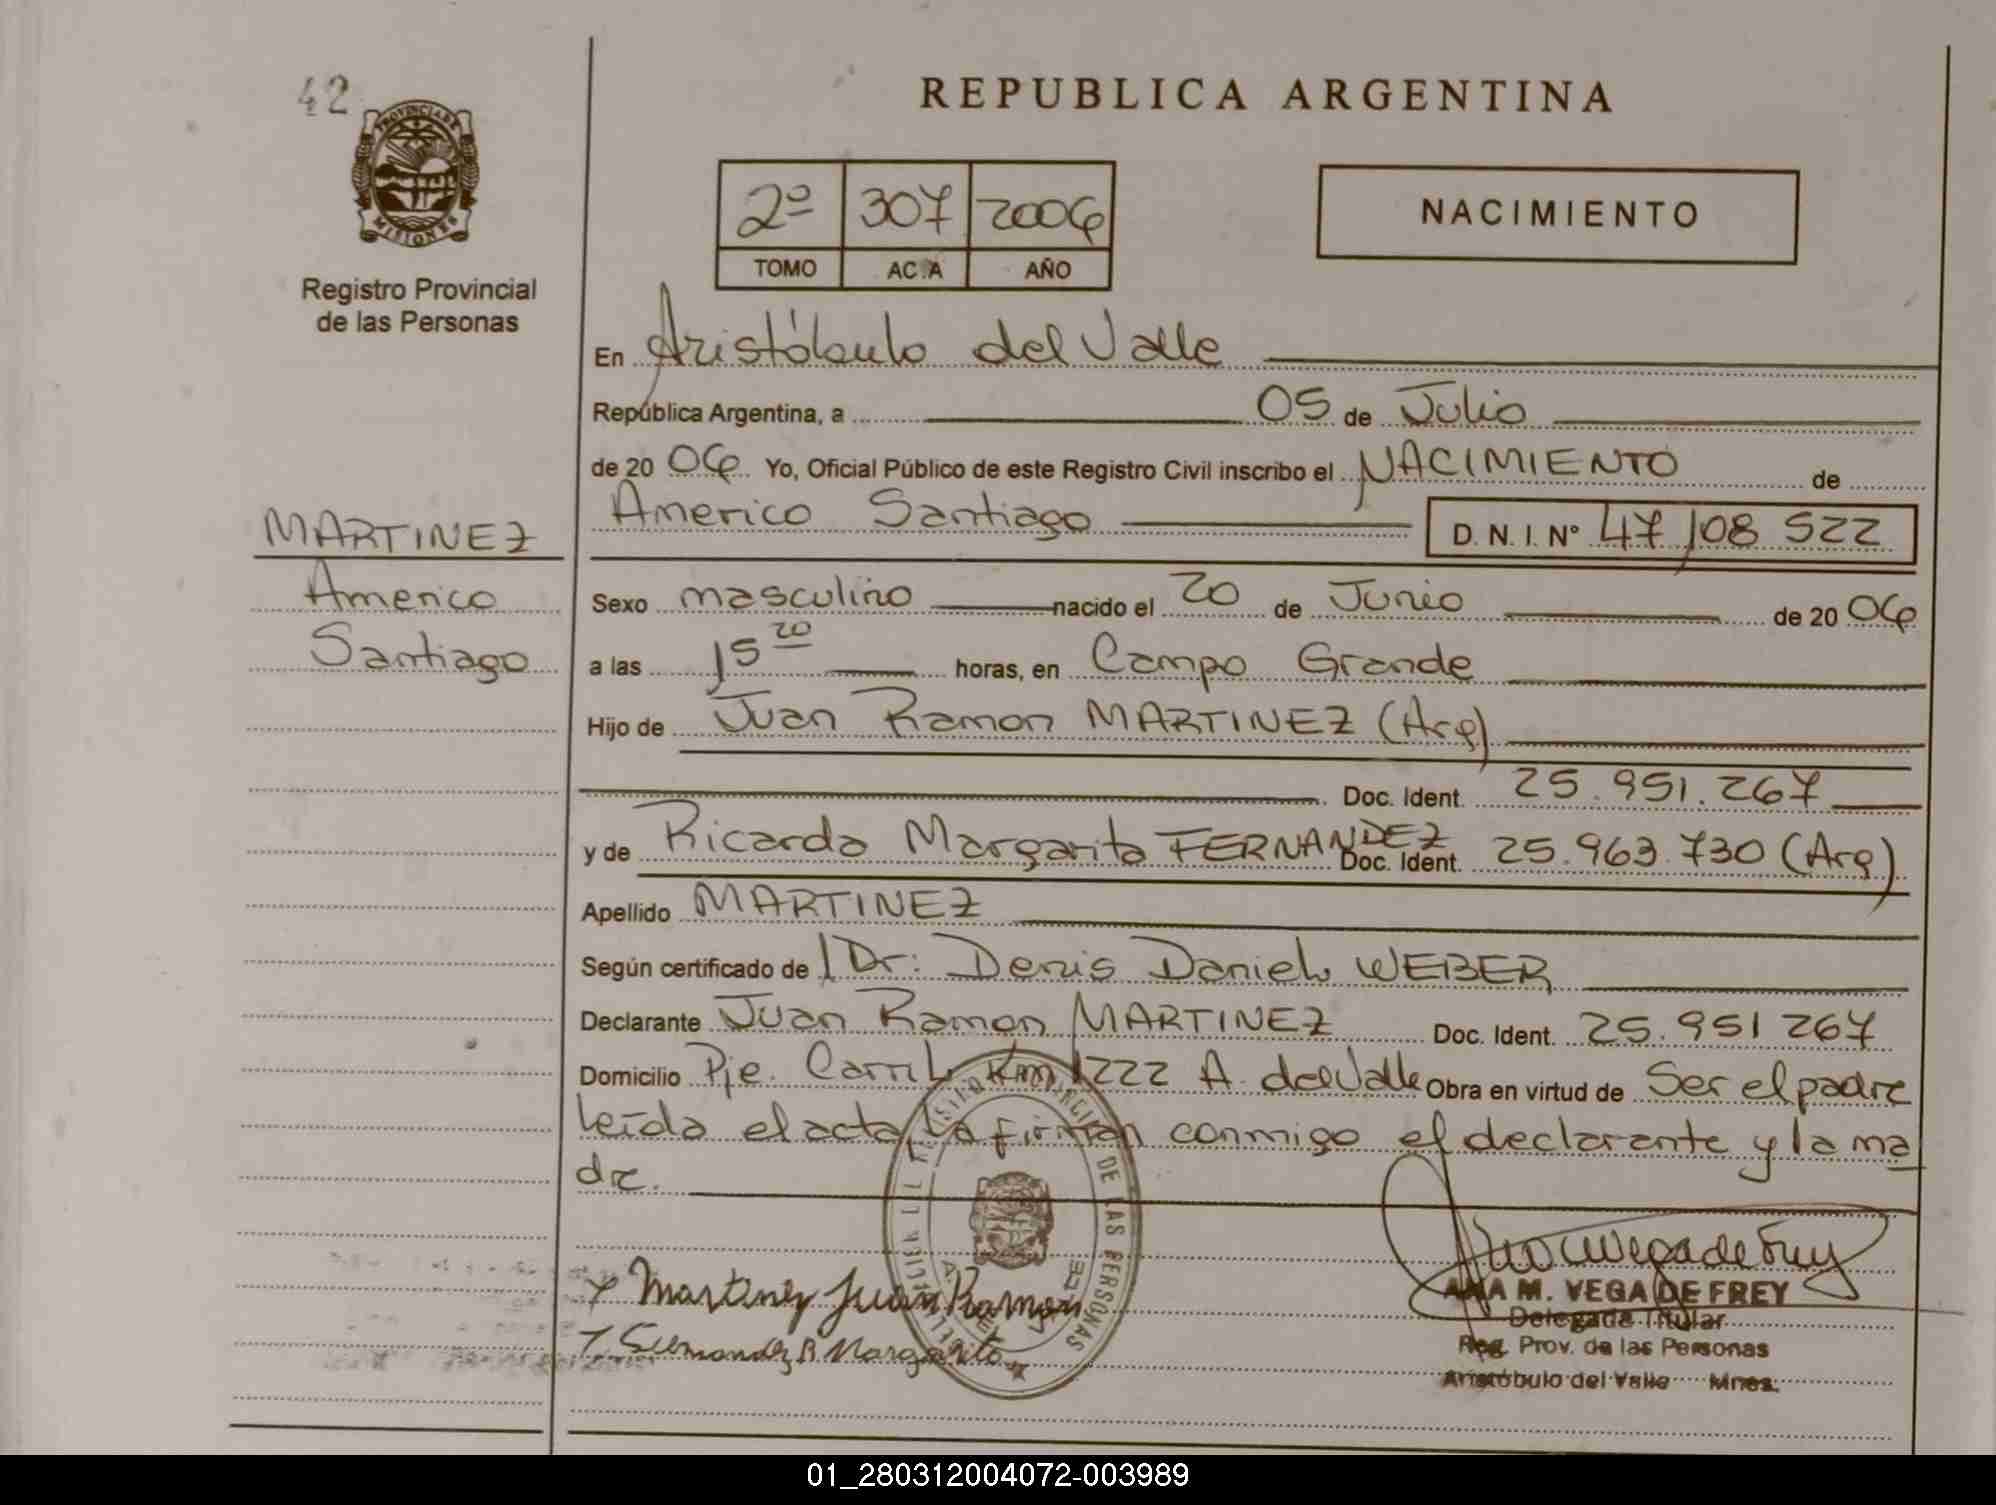 42
PROVINCIA DE
MISIONES
Registro Provincial
de las Personas
REPUBLICA ARGENTINA
2º 307 2006
TOMO AC A AÑO
NACIMIENTO
En Aristóbulo del Valle
República Argentina, a 05 de Julio
de 20 06 Yo, Oficial Público de este Registro Civil inscribo el NACIMIENTO de
Americo Santiago D. N. I. Nº 47 108 522
MARTINEZ
Americo
Santiago
Sexo masculino nacido el 20 de Junio de 20 06
a las 15 20 horas, en Campo Grande
Hijo de Juan Ramon MARTINEZ (Arg)
Doc. Ident. 25.951.267
y de Ricarda Margarita FERNANDEZ Doc. Ident. 25.963.730 (Arg)
Apellido MARTINEZ
Según certificado de Dr: Denis Daniel WEBER
Declarante Juan Ramon MARTINEZ Doc. Ident. 25.951 267
Domicilio Pje. Carril Km 1222 A. del Valle Obra en virtud de Ser el padre
leída el acta, la firman conmigo el declarante y la ma
dre.
DE LAS PERSONAS
Martinez Juan Ramon
ANA M. VEGA DE FREY
Delegada Titular
Reg. Prov. de las Personas
Aristóbulo del Valle Mnes.
01_280312004072-003989